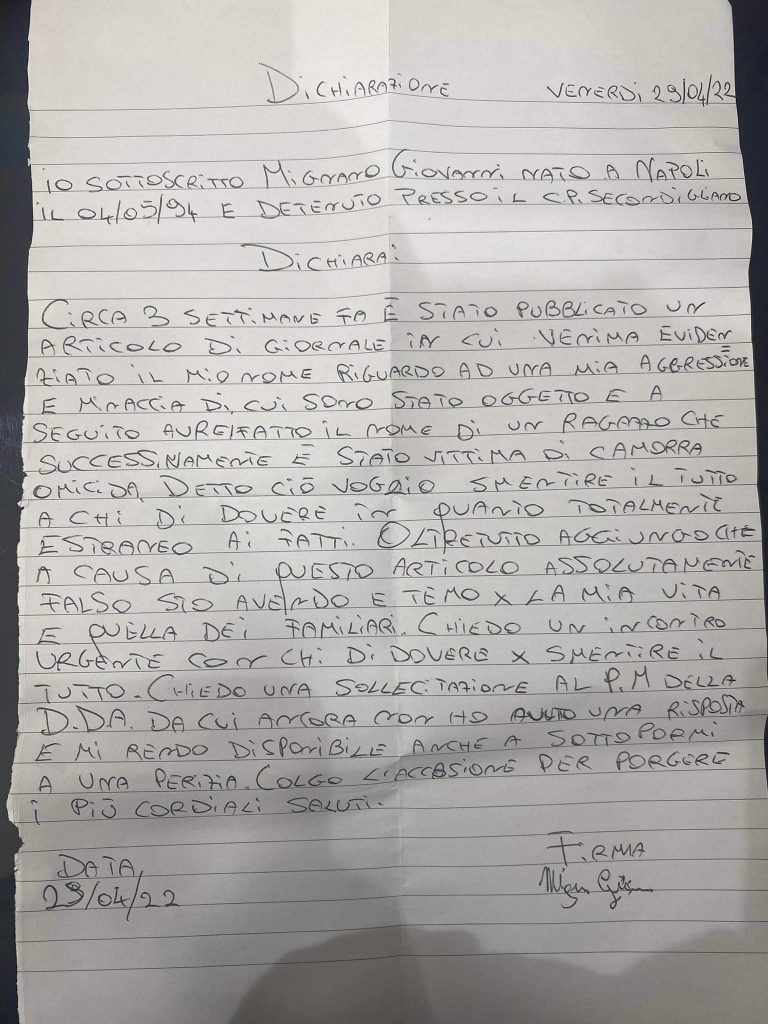 DICHIARAZIONE VENERDI 29/04/22
IO SOTTOSCRITTO MIGNANO GIOVANNI NATO A NAPOLI
IL 04/05/94 E DETENUTO PRESSO IL C.P. SECONDIGLIANO
DICHIARA:
CIRCA 3 SETTIMANE FA È STATO PUBBLICATO UN
ARTICOLO DI GIORNALE IN CUI VENIVA EVIDEN
ZIATO IL MIO NOME RIGUARDO AD UNA MIA AGGRESSIONE
E MINACCIA DI CUI SONO STATO OGGETTO E A
SEGUITO AUREI FATTO IL NOME DI UN RAGAZZO CHE
SUCCESSIVAMENTE È STATO VITTIMA DI CAMORRA
OMICIDA. DETTO CIÒ VOGLIO SMENTIRE IL TUTTO
A CHI DI DOVERE IN QUANTO TOTALMENTE
ESTRANEO AI FATTI. OLTRETUTTO AGGIUNGO CHE
A CAUSA DI QUESTO ARTICOLO ASSOLUTAMENTE
FALSO STO AVENDO E TEMO X LA MIA VITA
E QUELLA DEI FAMILIARI. CHIEDO UN INCONTRO
URGENTE CON CHI DI DOVERE X SMENTIRE IL
TUTTO. CHIEDO UNA SOLLECITAZIONE AL P.M DELLA
D.D.A. DA CUI ANCORA NON HO AVUTO UNA RISPOSTA
E MI RENDO DISPONIBILE ANCHE A SOTTOPORMI
A UNA PERIZIA. COLGO L'ACCASIONE PER PORGERE
I PIÙ CORDIALI SALUTI.
DATA, FIRMA
29/04/22